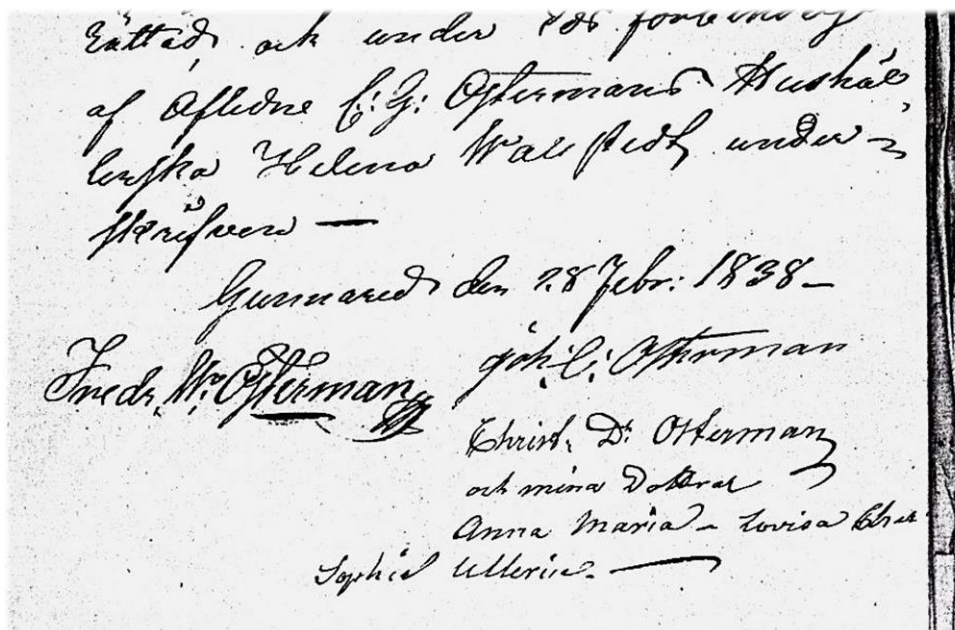 rättad, och under Ed's förbindelse
af Aflidne C: G: Ostermans Hushål
lerska Helena Wallstedt under-
skrifven —
Gunnared den 28 Febr: 1838 –
Joh: C: Osterman
Fredr. W: Osterman
Christ. D: Osterman
och mina Döttrar
Anna Maria – Lovisa Char
Sophia Ullerica. —